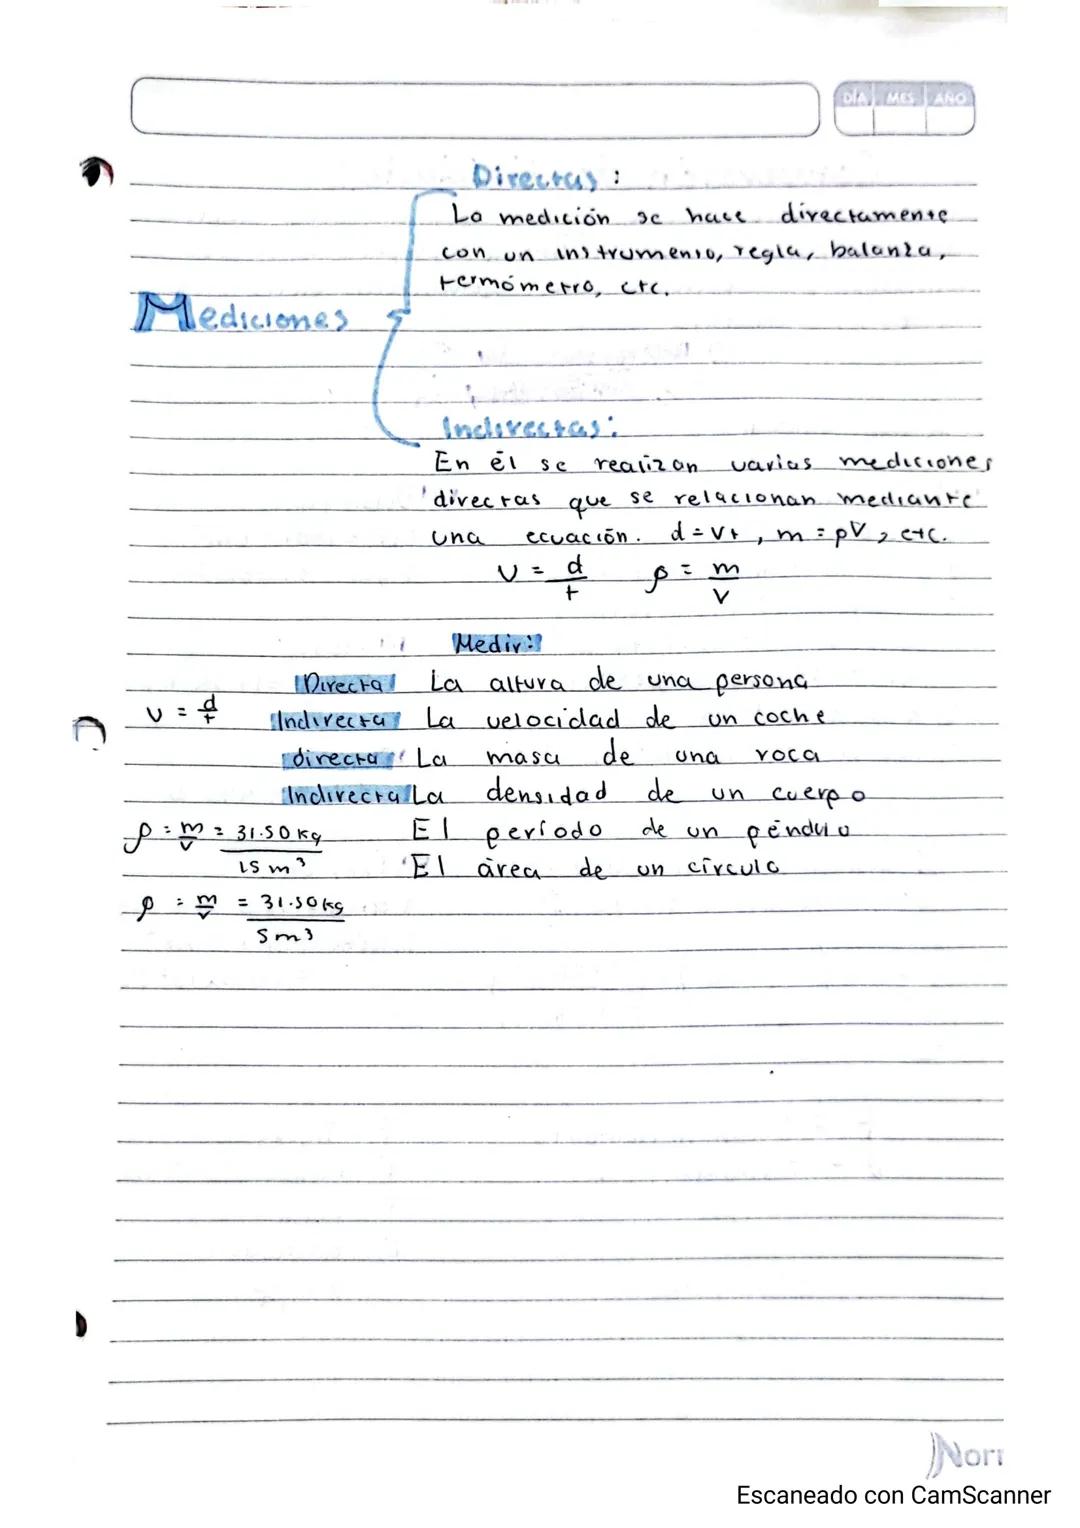 DÍA MES AÑO
Directas :
La medición se hace directamente
con un instrumento, regla, balanza,
termómetro, etc.
Mediciones
Indirectas:
En él se realizan varias mediciones
directas que se relacionan mediante
una ecuación. d = vt , m = ρV, etc.
v = d/t ρ = m/v
Medir:
Directa La altura de una persona
v = d/t Indirecta La velocidad de un coche
directa La masa de una roca
Indirecta La densidad de un cuerpo
ρ = m/v = 31.50 kg/15 m³ El período de un péndulo
El área de un círculo
ρ = m/v = 31.50 kg/5 m³
Norr
Escaneado con CamScanner